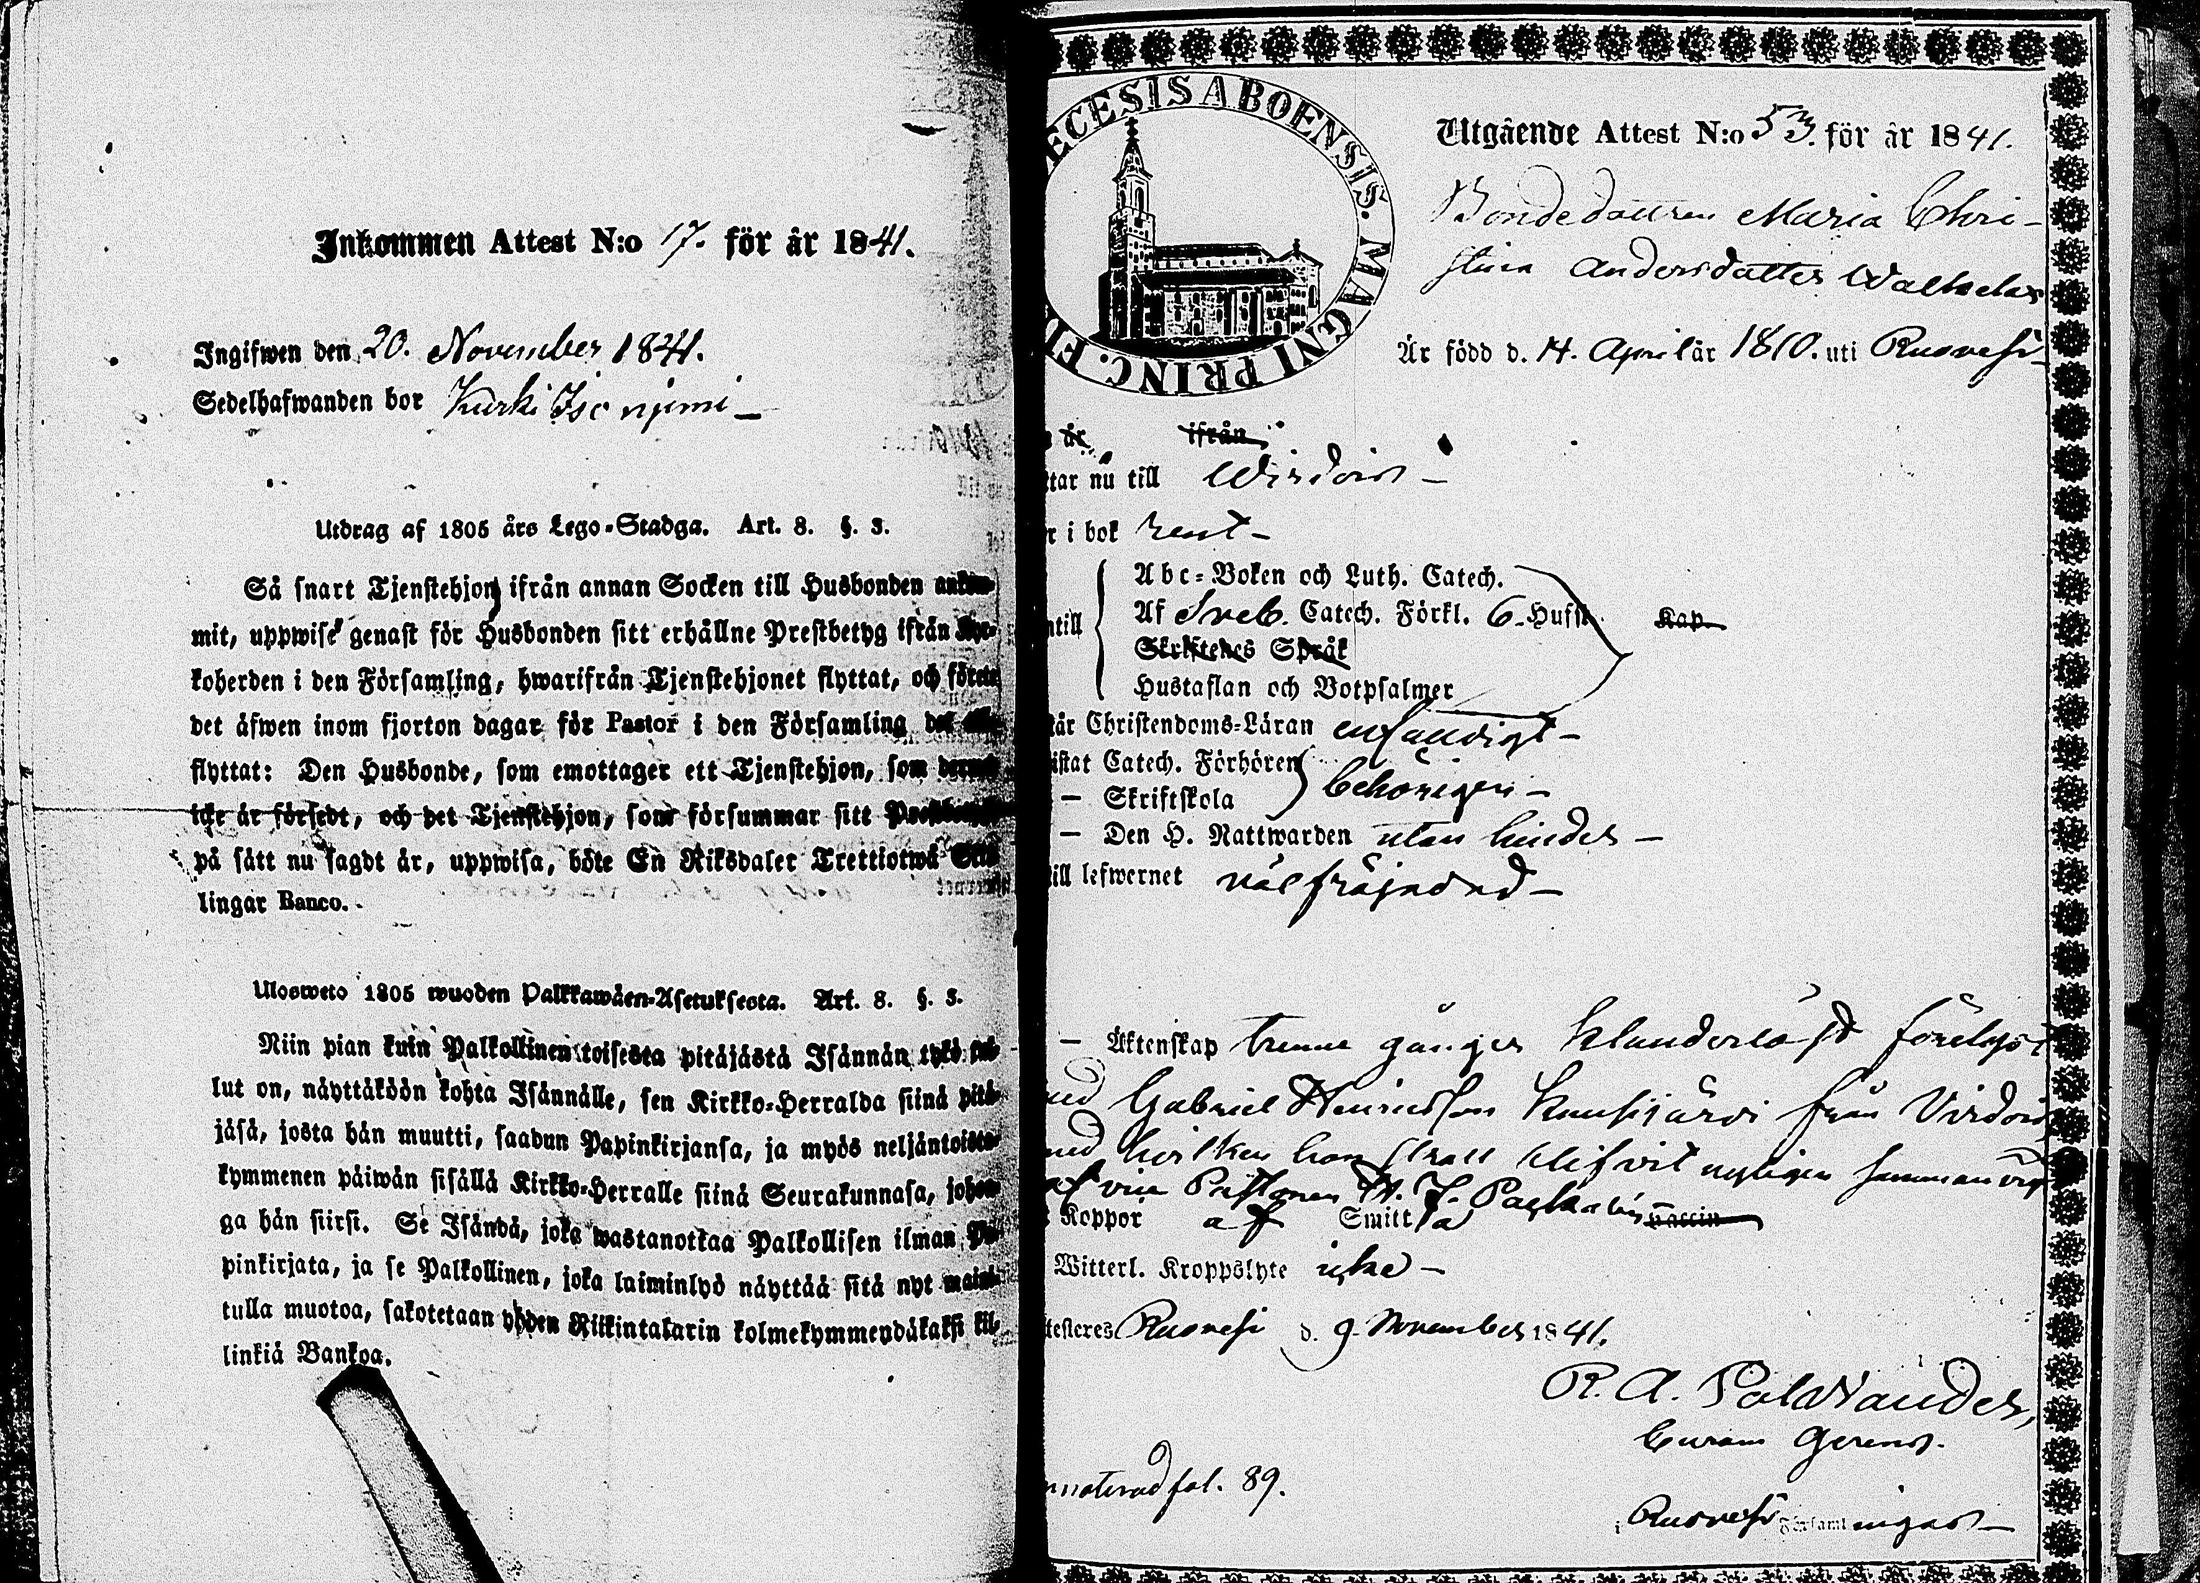 Inkommen Attest N:o 17. för år 1841.
Ingifwen den 20. November 1841.
Sedelhafwanden bor Kurki Iso njemi –
Utdrag af 1805 års Lego-Stadga. Art. 8. §. 3.
Så snart Tjenstehjon ifrån annan Socken till Husbonden ankom-
mit, uppwise genast för Husbonden sitt erhållne Prestbetyg ifrån Kyr-
koherden i den Församling, hwarifrån Tjenstehjonet flyttat, och förete
det äfwen inom fjorton dagar för Pastor i den Församling det
flyttat: Den Husbonde, som emottager ett Tjenstehjon, som dermed
icke är försedt, och det Tjenstehjon, som försummar sitt Prestbetyg
på sätt nu sagdt är, uppwisa, böte En Riksdaler Trettiotwå Skil-
lingar Banco.
Ulosweto 1805 wuoden Palkkawäen-Asetuksesta. Art. 8. §. 3.
Niin pian kuin Palkollinen toisesta pitäjästä Isännän tykö tul-
lut on, näyttäköön kohta Isännälle, sen Kirkko-Herralda siinä pitä-
jäsä, josta hän muutti, saadun Papinkirjansa, ja myös neljäntoista-
kymmenen päiwän sisällä Kirkko-Herralle siinä Seurakunnasa, johon-
ga hän siirsi. Se Isändä, joka wastanottaa Palkollisen ilman Pa-
pinkirjata, ja se Palkollinen, joka laiminlyö näyttää sitä nyt mainit-
tulla muotoa, sakotetaan yhden Riikintalarin kolmekymmendäkaksi kil-
linkiä Bankoa.
ECESIS ABOENSIS. MAGNI PRINC. FI
Utgående Attest N:o 53. för år 1841.
Bondedottren Maria Chri-
stina Andersdotter
Är född d. 14. April år 1810. uti Ruovesi –
år ifrån
ttar nu till Wirdois –
r i bok rent –
Abc-Boken och Luth. Catech.
ntill Af Sveb. Catech. Förkl. 6. Hufst. Kap.
Skriftenes Språk
Hustaflan och Botpsalmer
tår Christendoms-Läran enfaldigt –
istat Catech. Förhören behörigen –
– Skriftskola
– Den H. Nattwarden utan hinder –
till lefwernet välfräjdad –
– Äktenskap trenne gånger klanderlöst förelyst
med Gabriel Henricsson Kuusijärvi från Virdois,
med hvilken hon skall blifvit nyligen samman vigd
af
Koppor af Smitta vaccin
Witterl. Kroppslyte icke –
testeres Ruovesi d. 9. November 1841.
R. A. Polviander,
Curam Gerens.
noterad fol. 89.
i Ruovesi Församlingar –